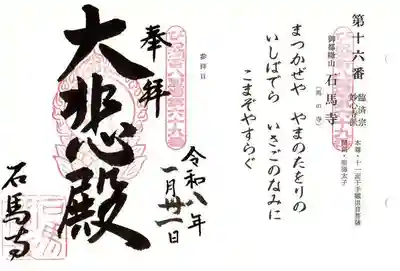 第十六番
臨済宗
妙心寺派
御都繖山 石馬寺
(馬の寺)
本尊・十一面千手観世音菩薩
開基・聖徳太子
まつかぜや やまのたをりの
いしばでら いさごのなみに
こまぞやすらぐ
参拝日
奉拝
大悲殿
令和八年
一月卅一日
石馬寺